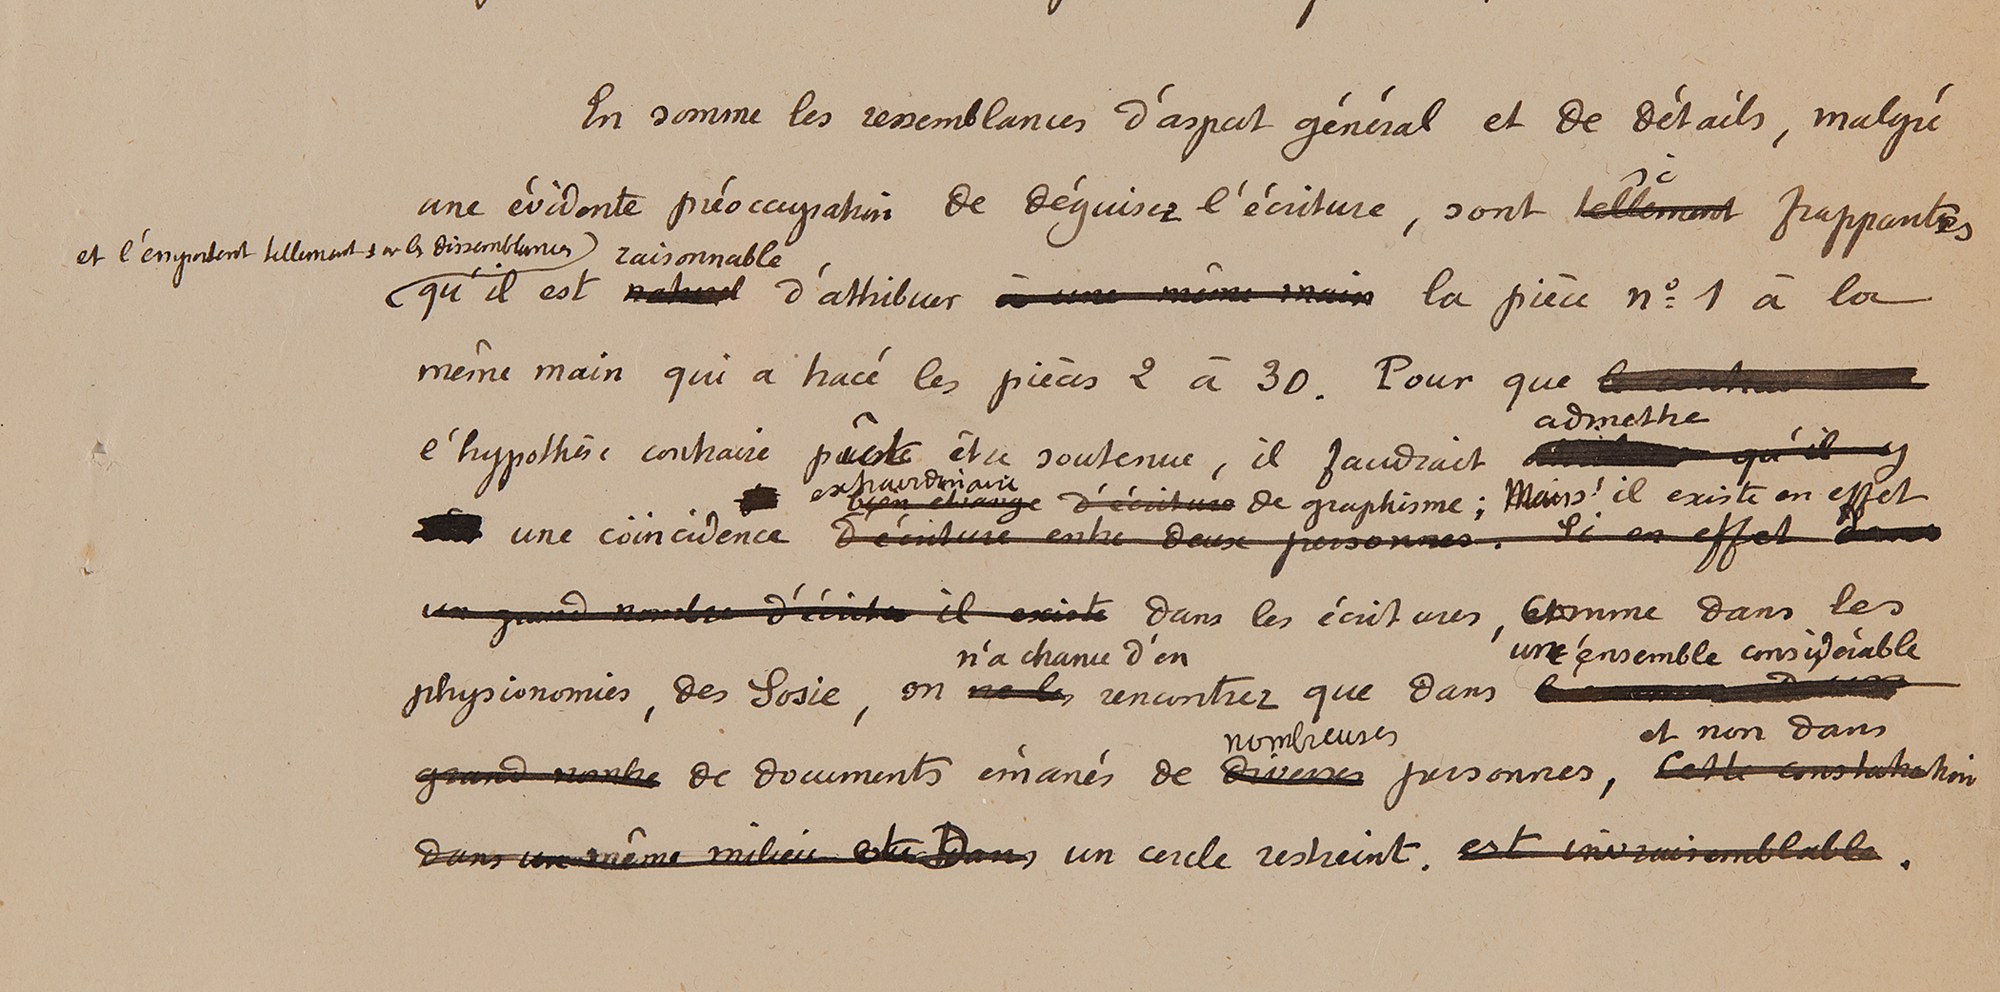 En somme les ressemblances d'aspect général et de détails, malgré
si
une évidente préoccupation de déguiser l'écriture, sont tellement frappantes
et l'emportent tellement sur les dissemblances raisonnable
qu'il est naturel d'attribuer à une même main la pièce nº 1 à la
même main qui a tracé les pièces 2 à 30. Pour que
admettre
l'hypothèse contraire puisse être soutenue, il faudrait qu'il y
extraordinaire
bien étrange d'écriture de graphisme ; Mais s'il existe en effet
une coïncidence d'écriture entre deux personnes. Si en effet dans
un grand nombre d'écrits il existe dans les écritures, comme dans les
n'a chance d'en un ensemble considérable
physionomies, des Sosie, on ne les rencontrer que dans
nombreuses et non dans
grand nombre de documents émanés de diverses personnes, Cette constatation
dans un même milieu dans un cercle restreint. est invraisemblable.